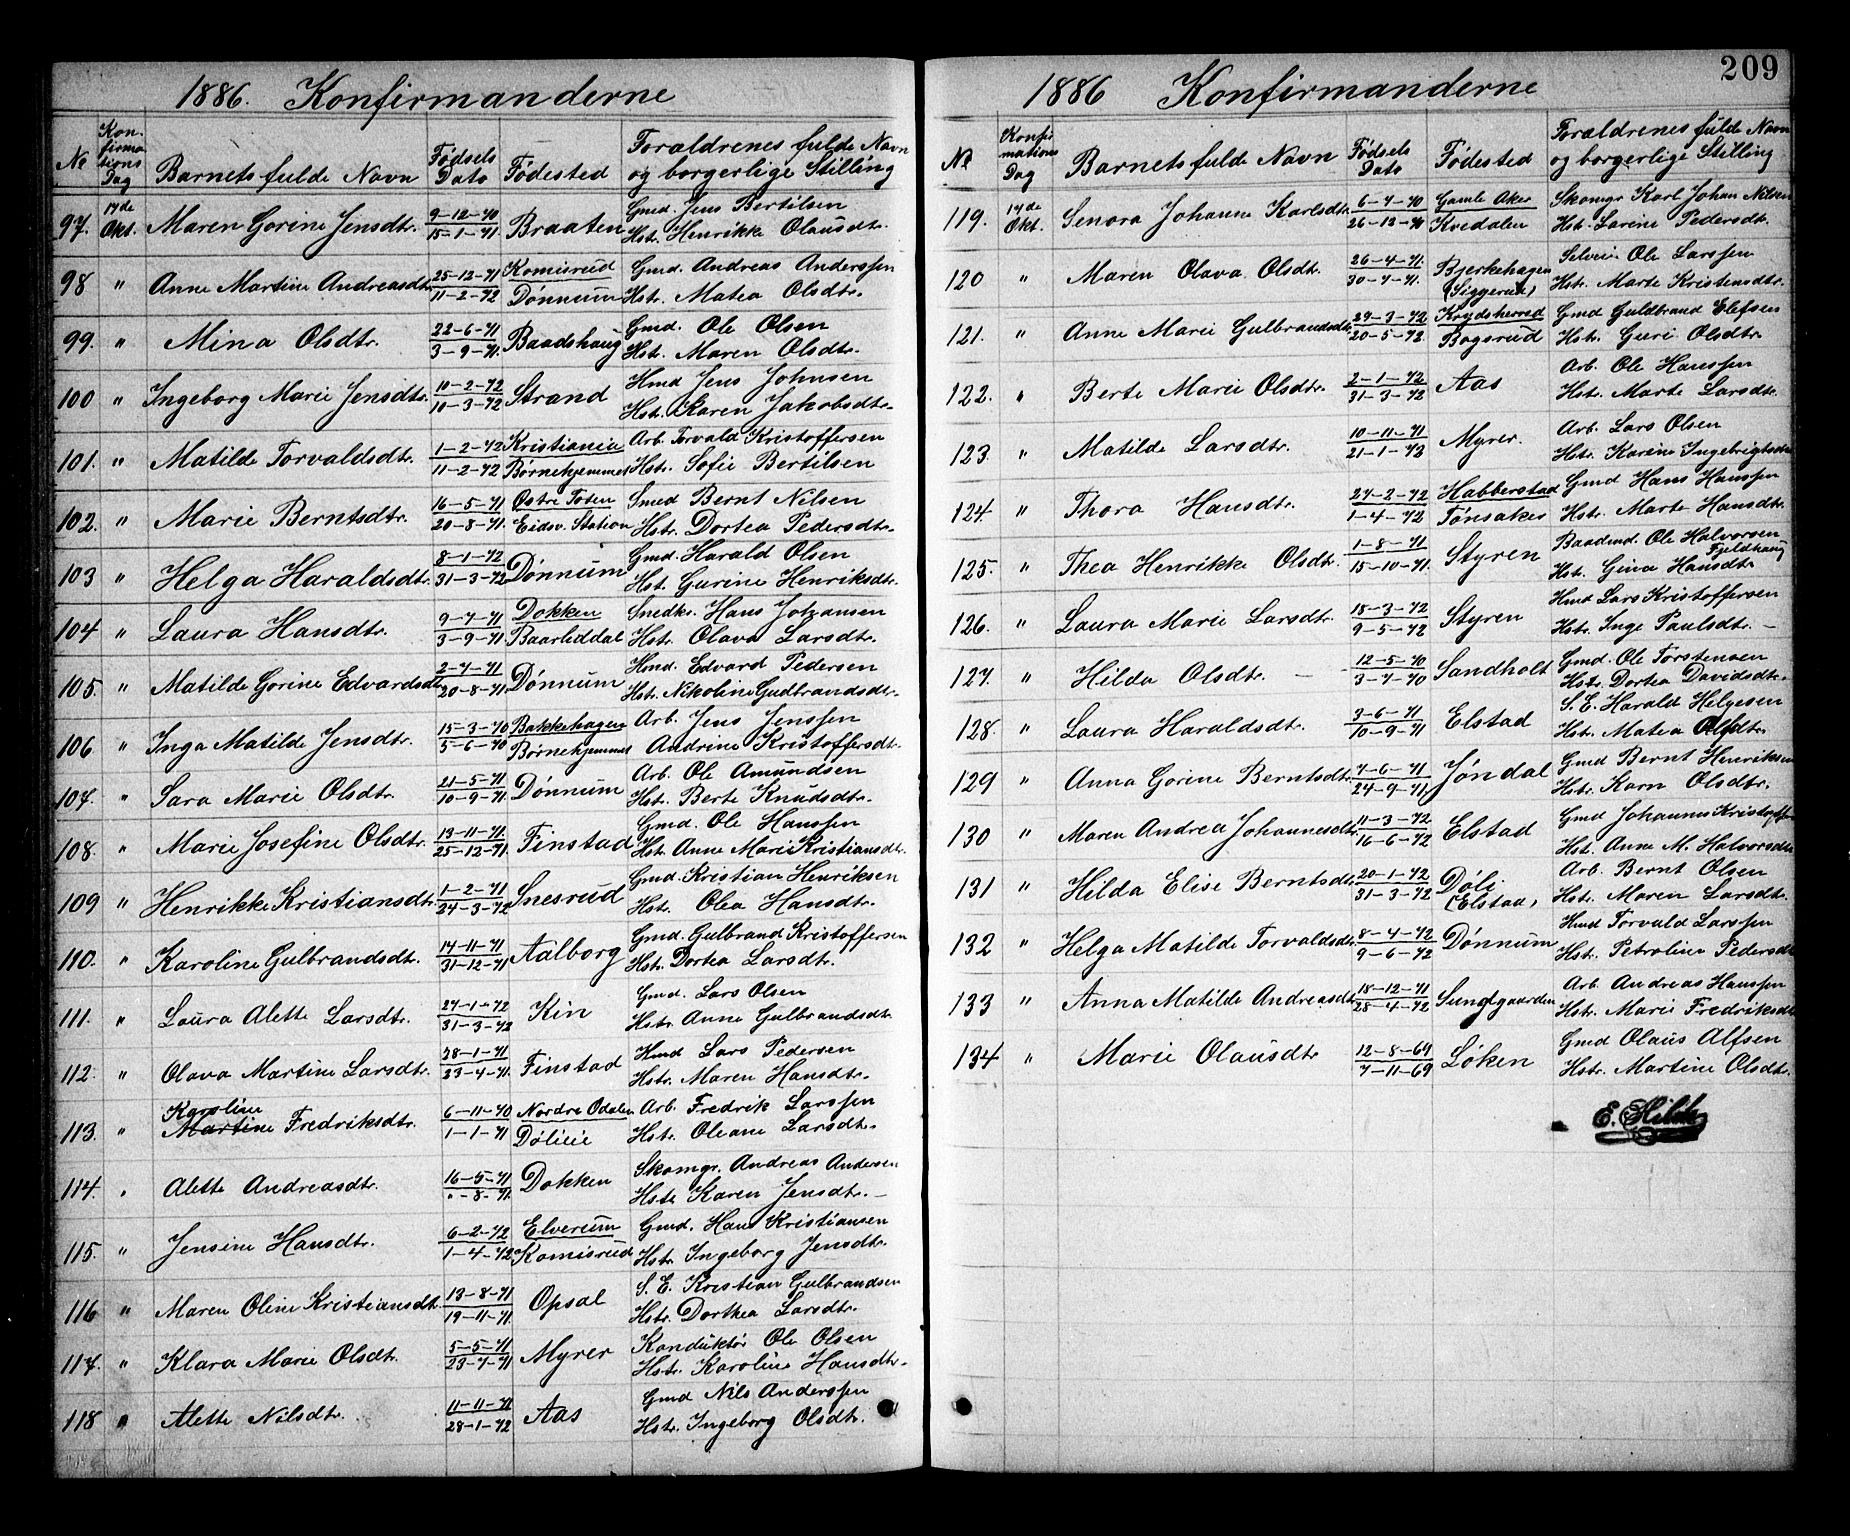 1886. Konfirmanderne
No Kon-firma-tions Dag Barnets fulde Navn Fødsels Dato Fødested Forældrenes fulde Navn og borgerlige Stilling
97. 17de Okt. Maren Gorine Jensdtr. 9-12-70 15-1-71 Braaten Gmd. Jens Bertilsen
Hst. Henrikke Olausdtr.
98 " Anne Martine Andreasdtr. 25-12-71 11-2-72 Komisrud Dønnum Gmd. Andreas Anderssen
Hst. Matea Olsdtr.
99. " Mina Olsdtr. 22-6-71 3-9-71. Baadshaug Gmd. Ole Olsen
Hst. Maren Olsdtr.
100 " Ingeborg Marie Jensdtr. 10-2-72 10-3-72 Strand Hmd Jens Johnsen
Hst. Karen Jakobsdtr.
101. " Matilde Torvaldsdtr. 1-2-72 11-2-72 Kristiania Børnehjemmet Arb. Torvald Kristoffersen
Hst. Sofie Bertilsen
102. " Marie Berntsdtr. 16-5-71 20-8-71. Østre Toten Eidsv. Station Smed Bernt Nilsen
Hst. Dortea Pedersdtr.
103 " Helga Haraldsdtr. 8-1-72 31-3-72 Dønnum Gmd. Harald Olsen
Hst. Gurine Henriksdtr.
104 " Laura Hansdtr. 9-7-71 3-9-71. Dokken Baarliddal Snedkr. Hans Johansen
Hst. Olava Larsdtr.
105. " Matilde Gorine Edvardsdtr 2-7-71 20-8-71 Dønnum Hmd. Edvard Pedersen
Hst. Nikoline Gudbrandsdtr.
106 " Inga Matilde Jensdtr. 15-3-70 5-6-70 Bakkehagen Børnehjemmet Arb. Jens Jenssen
Andrine Kristoffersdtr.
107. " Sara Marie Olsdtr. 21-5-71 10-9-71. Dønnum Arb. Ole Amundsen
Hst. Berte Knudsdtr.
108. " Marie Josefine Olsdtr. 13-11-71 25-12-71. Finstad Gmd. Ole Hanssen
Hst. Anne Marie Kristiansdtr.
109 " Henrikke Kristiansdtr. 1-2-71 24-3-72 Snesrud Gmd. Kristian Henriksen
Hst. Olea Hansdtr.
110. " Karoline Gulbrandsdtr. 14-11-71 31-12-71 Aalborg Gmd. Gulbrand Kristoffersen
Hst. Dortea Larsdtr.
111. " Laura Alette Larsdtr. 27-1-72 31-3-72 Kin Gmd. Lars Olsen
Hst. Anne Gulbrandsdtr
112. " Olava Martine Larsdtr. 28-1-71 23-4-71. Finstad Hmd Lars Pedersen
Hst. Maren Hansdtr.
113. " Karoline Martine Fredriksdtr. 6-11-70 1-1-71 Nordre Odalen Arb. Fredrik Larssen
Hst. Oleane Larsdtr.
114. " Alette Andreasdtr. 16-5-71 "-8-71. Dokken Skomgr. Andreas Andersen
Hst. Karen Jensdtr.
115. " Jensine Hansdtr. 6-2-72 1-4-72 Elverum Komisrud Gmd. Hans Kristiansen
Hst. Ingeborg Jensdtr.
116 " Maren Oline Kristiansdtr. 13-8-71 19-11-71. Opsal S. E. Kristian Gulbrandsen
Hst. Dorthea Larsdtr.
117. " Klara Marie Olsdt. 5-5-71 23-7-71 Myrer Konduktør Ole Olsen
Hst. Karoline Hansdtr.
118 " Alette Nilsdtr. 11-11-71 28-1-72 Aas Gmd Nils Anderssen
Hst. Ingeborg Olsdtr.
209
1886 Konfirmanderne
No Konfir mations Dag Barnets fulde Navn Fødsels Dato Fødested Forældrenes fulde Navn og borgerlige Stilling
119. 17de Okt. Senora Johanne Karlsdtr. 6-7-70 26-12-70 Gamle Aker Kvedalen Skomgr Karl Johan Nilsen
Hst. Lorine Pedersdt.
120 " Maren Olava Olsdt. 26-4-71. 30-7-71. Bjerkehagen (Siggerud) Ole Larssen
Hst. Marte Kristensdtr.
121. " Anne Marie Gulbrandsdtr 27-3-72 20-5-72. Krydsherred Bogsrud Gmd Guldbrand Elefsen
Hst. Guri Olsdtr.
122. " Berte Marie Olsdtr. 2-1-72 31-3-72 Aas Arb. Ole Hanssen
Hst. Marte Larsdtr.
123. " Matilde Larsdtr. 10-11-71 21-1-72 Myrer. Arb. Lars Olsen
Hst. Karine Ingebrigtsdtr
124. " Thora Hansdtr. 27-2-72 1-4-72 Habberstad Tønsaker Gmd Hans Hanssen
Hst. Marte Hansdtr.
125. " Thea Henrikke Olsdtr. 1-8-71 15-10-71. Styren Baadmd. Ole Halvorsen Fjeldhaug
Hst. Gina Hansdtr
126. " Laura Marie Larsdtr. 18-3-72 9-5-72 Styren Hmd Lars Kristoffersen
Hst. Inge Paulsdtr.
127. " Hilda Olsdtr. 12-5-70 3-7-70 Sandholt Gmd. Ole Torstensen
Hst. Dortea Davidsdtr.
128. " Laura Haraldsdtr. 3-6-71 10-9-71 Elstad S. E. Harald Helgesen
Hst. Matea Olsdtr.
129 " Anna Gorine Berntsdtr. 7-6-71 24-9-71 Jøndal Gmd Bernt Henriksen
Hst. Karn Olsdtr.
130 " Maren Andrea Johannesdtr. 11-3-72 16-6-72 Elstad Gmd Johannes Kristoffsen
Hst. Anne M. Halvorsdtr
131 " Hilda Elise Berntsdtr. 20-1-72 31-3-72 Døli. (Elstad) Arb. Bernt Olsen
Hst. Maren Larsdtr.
132 " Helga Matilde Torvaldsdtr. 8-4-72 9-6-72 Dønnum Hmd Torvald Larssen
Hst. Petroline Pedersdt
133 " Anna Matilde Andreasdtr. 18-12-71 28-4-72 Sundgaarden Arb. Andreas Hanssen
Hst. Marie Fredriksdtr
134 " Marie Olausdtr 12-8-69 7-11-69 Løken Gmd Olaus Alfsen
Hst. Martine Olsdtr.
E. Hilde